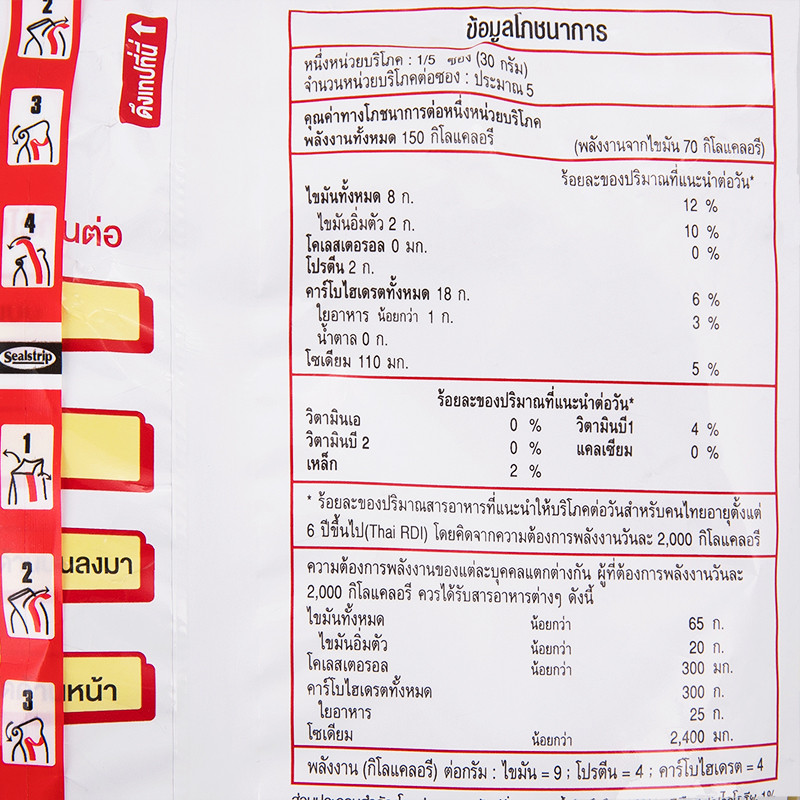 2
ดึงเทปที่นี่
3
4
นต่อ
Sealstrip
1
2
นลงมา
3
หน้า
ข้อมูลโภชนาการ
หนึ่งหน่วยบริโภค : 1/5 ซอง (30 กรัม)
จำนวนหน่วยบริโภคต่อซอง : ประมาณ 5
คุณค่าทางโภชนาการต่อหนึ่งหน่วยบริโภค
พลังงานทั้งหมด 150 กิโลแคลอรี (พลังงานจากไขมัน 70 กิโลแคลอรี)
ร้อยละของปริมาณที่แนะนำต่อวัน*
ไขมันทั้งหมด 8 ก. 12 %
ไขมันอิ่มตัว 2 ก. 10 %
โคเลสเตอรอล 0 มก. 0 %
โปรตีน 2 ก.
คาร์โบไฮเดรตทั้งหมด 18 ก. 6 %
ใยอาหาร น้อยกว่า 1 ก. 3 %
น้ำตาล 0 ก.
โซเดียม 110 มก. 5 %
ร้อยละของปริมาณที่แนะนำต่อวัน*
วิตามินเอ 0 % วิตามินบี1 4 %
วิตามินบี 2 0 % แคลเซียม 0 %
เหล็ก 2 %
* ร้อยละของปริมาณสารอาหารที่แนะนำให้บริโภคต่อวันสำหรับคนไทยอายุตั้งแต่
6 ปีขึ้นไป(Thai RDI) โดยคิดจากความต้องการพลังงานวันละ 2,000 กิโลแคลอรี
ความต้องการพลังงานของแต่ละบุคคลแตกต่างกัน ผู้ที่ต้องการพลังงานวันละ
2,000 กิโลแคลอรี ควรได้รับสารอาหารต่างๆ ดังนี้
ไขมันทั้งหมด น้อยกว่า 65 ก.
ไขมันอิ่มตัว น้อยกว่า 20 ก.
โคเลสเตอรอล น้อยกว่า 300 มก.
คาร์โบไฮเดรตทั้งหมด 300 ก.
ใยอาหาร 25 ก.
โซเดียม น้อยกว่า 2,400 มก.
พลังงาน (กิโลแคลอรี) ต่อกรัม : ไขมัน = 9 ; โปรตีน = 4 ; คาร์โบไฮเดรต = 4